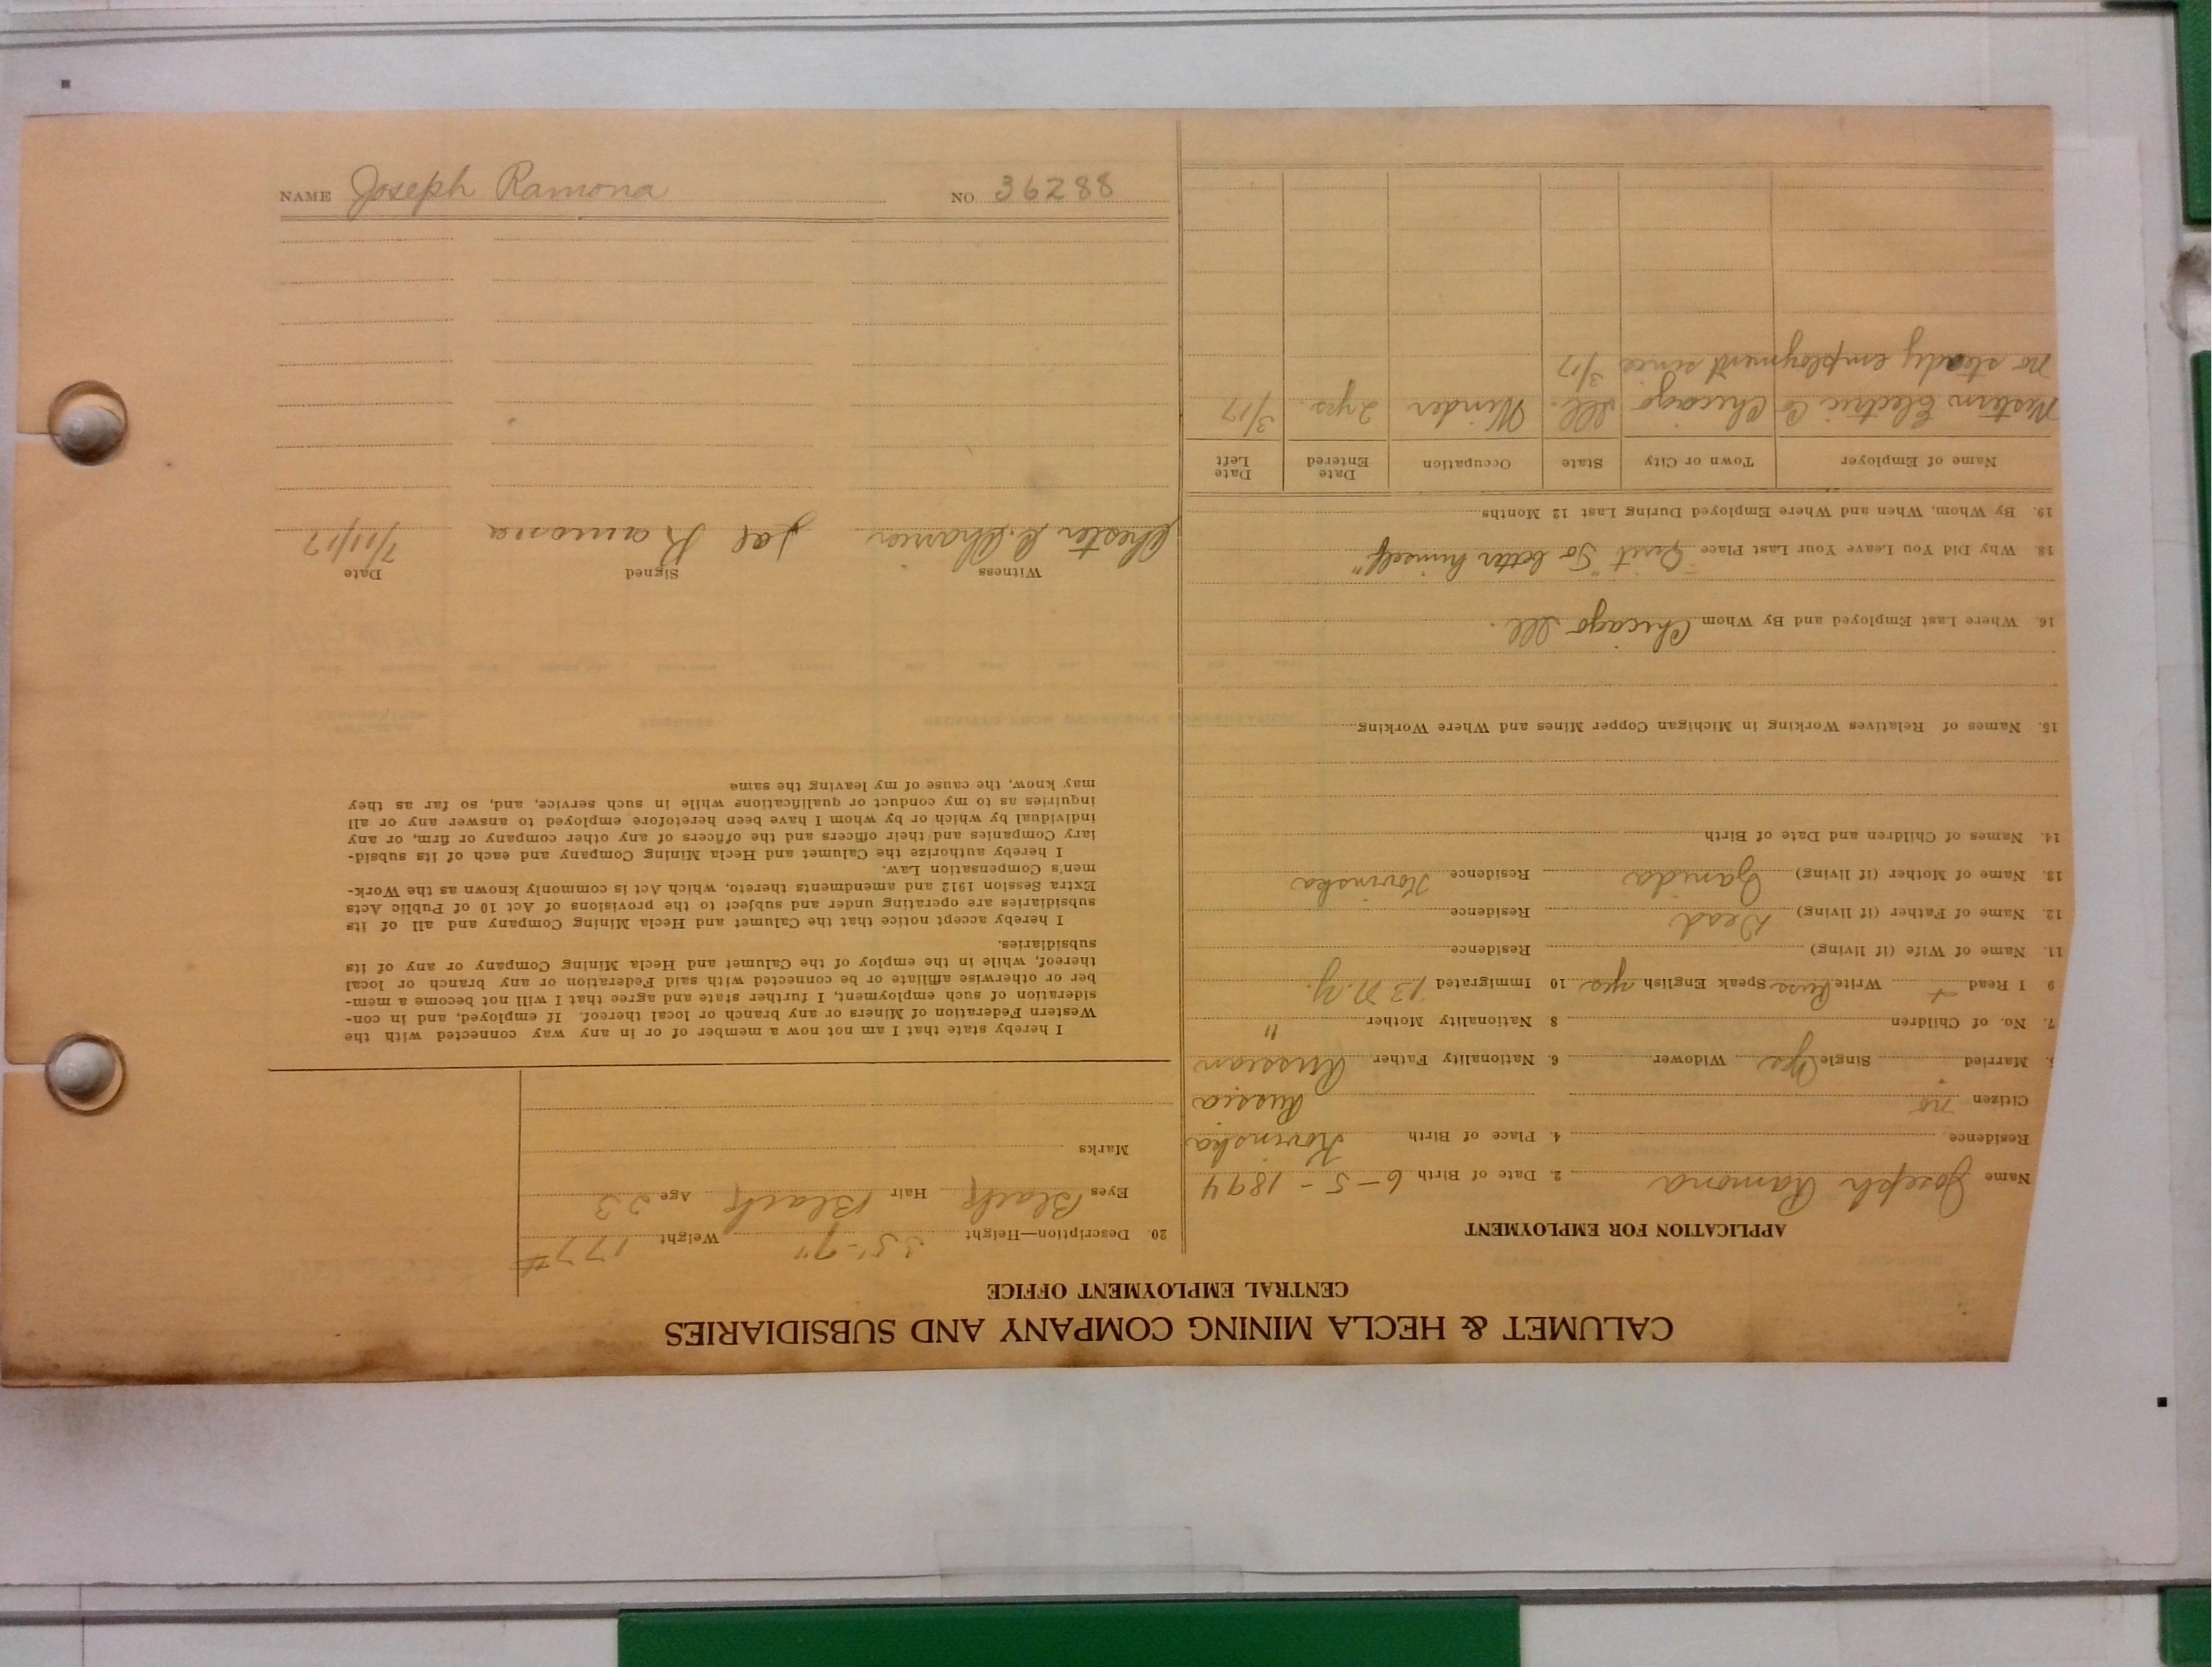 CALUMET & HECLA MINING COMPANY AND SUBSIDIARIES
CENTRAL EMPLOYMENT OFFICE
APPLICATION FOR EMPLOYMENT
Name Joseph Ramona 2. Date of Birth 6-5-1894
Residence 4. Place of Birth Kovinska
Citizen no Russia
Married Single Yes Widower 6. Nationality Father Russian
7. No. of Children 8 Nationality Mother "
9 I Read Write Russ Speak English yes 10 Immigrated '13 N.Y.
11. Name of Wife (if living) Residence
12. Name of Father (if living) Dead Residence
13. Name of Mother (if living) Residence Kovinska
14. Names of Children and Date of Birth
15. Names of Relatives Working in Michigan Copper Mines and Where Working
16. Where Last Employed and By Whom Chicago Ill.
18. Why Did You Leave Your Last Place Quit "To better himself"
19. By Whom, When and Where Employed During Last 12 Months
Name of Employer Town or City State Occupation Date Entered Date Left
Western Electric Co Chicago Ill. Winder 2 yrs. 3/17
No steady employment since 3/17
20. Description—Height 5'-9" Weight 177#
Eyes Black Hair Black Age 23
Marks
I hereby state that I am not now a member of or in any way connected with the
Western Federation of Miners or any branch or local thereof. If employed, and in con-
sideration of such employment, I further state and agree that I will not become a mem-
ber or otherwise affiliate or be connected with said Federation or any branch or local
thereof, while in the employ of the Calumet and Hecla Mining Company or any of its
subsidiaries.
I hereby accept notice that the Calumet and Hecla Mining Company and all of its
subsidiaries are operating under and subject to the provisions of Act 10 of Public Acts
Extra Session 1912 and amendments thereto, which Act is commonly known as the Work-
men's Compensation Law.
I hereby authorize the Calumet and Hecla Mining Company and each of its subsid-
iary Companies and their officers and the officers of any other company or firm, or any
individual by which or by whom I have been heretofore employed to answer any or all
inquiries as to my conduct or qualifications while in such service, and, so far as they
may know, the cause of my leaving the same
Witness Signed Date
Chester Joe Ramona 7/11/17
NAME Joseph Ramona NO. 36288